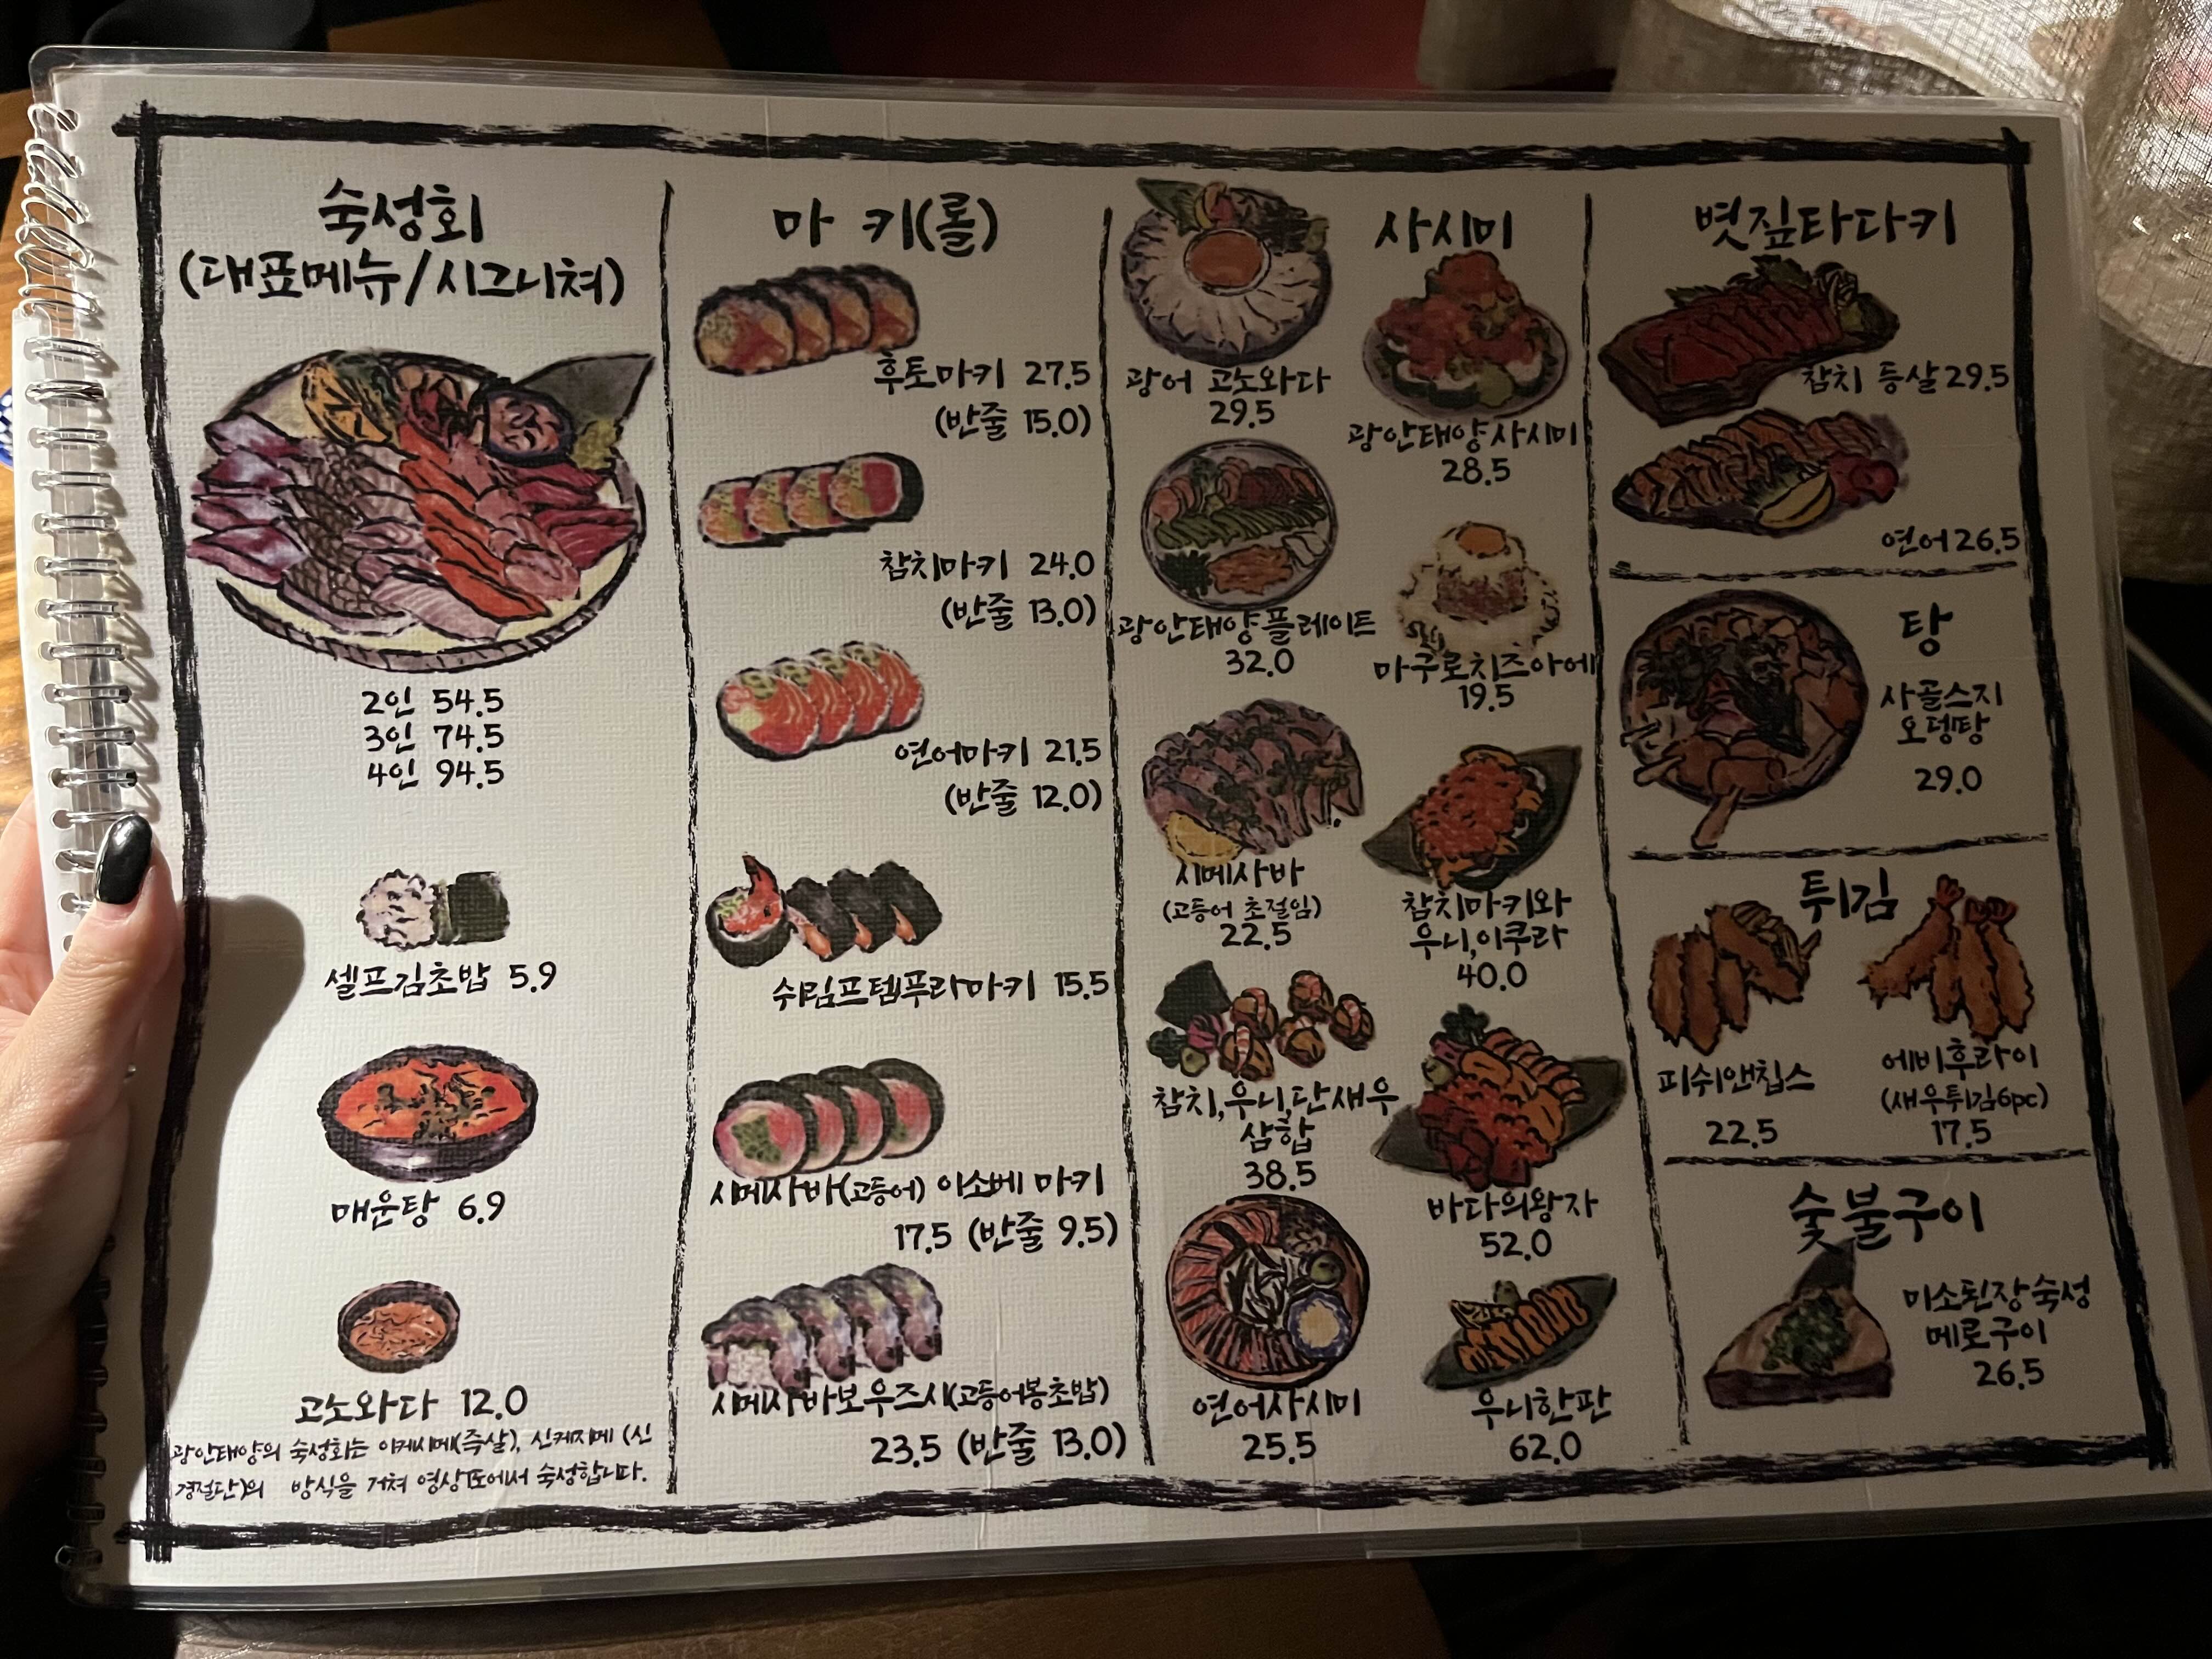 숙성회
(대표메뉴/시그니쳐)
2인 54.5
3인 74.5
4인 94.5
셀프김초밥 5.9
매운탕 6.9
고노와다 12.0
광안태양의 숙성회는 이케시메(즉살), 신케지메 (신
경절단)의 방식을 거쳐 영상포에서 숙성합니다.
마 키(롤)
후토마키 27.5
(반줄 15.0)
참치마키 24.0
(반줄 13.0)
연어마키 21.5
(반줄 12.0)
쉬림프템푸라마키 15.5
시메사바(고등어) 이소베 마키
17.5 (반줄 9.5)
시메사바보우즈시(고등어봉초밥)
23.5 (반줄 13.0)
사시미
광어 고노와다
29.5
광안태양사시미
28.5
광안태양플레이트
32.0
마구로치즈아에
19.5
시메사바
(고등어 초절임)
22.5
참치마키와
우니,이쿠라
40.0
참치,우니,단새우
삼합
38.5
바다의왕자
52.0
연어사시미
25.5
우니한판
62.0
볏짚타다키
참치 등살 29.5
연어 26.5
탕
사골스지
오뎅탕
29.0
튀김
피쉬앤칩스
22.5
에비후라이
(새우튀김6pc)
17.5
숯불구이
미소된장숙성
메로구이
26.5